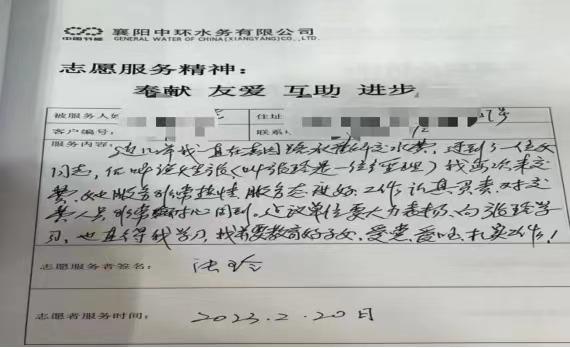 中国节能 襄阳中环水务有限公司
GENERAL WATER OF CHINA(XIANGYANG)CO.,LTD.
志愿服务精神:
奉献 友爱 互助 进步
被服务人姓 住址 号
客户编号: 联系
服务内容: 这几年我一直在 水 交水费,遇到了一位女
同志, 姓张(叫张玲是一位 经理)我每次来交
费,她服务非常热情,服务态度好,工作认真负责,对交
费人员非常耐心周到。建议单位要大力表扬,向张玲学
习,也值得我学习,我 要教育好子女,爱党,爱国,扎实工作!
志愿服务者签名: 张玲
志愿者服务时间: 2023.2.20日